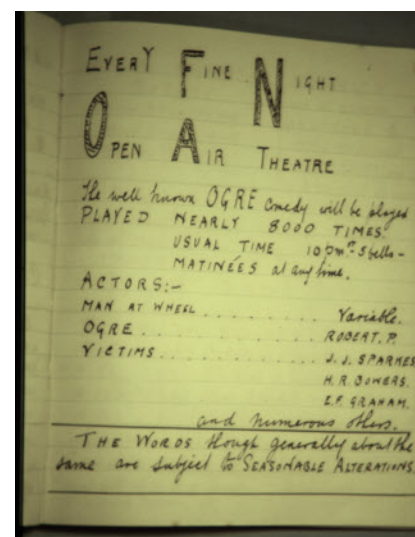 EVERY FINE NIGHT
OPEN AIR THEATRE
The well known OGRE comedy will be played
PLAYED NEARLY 8000 TIMES
USUAL TIME 10 pm - 5 bells -
MATINÉES at any time.
ACTORS:-
MAN AT WHEEL . . . . . . . . Variable.
OGRE . . . . . . . . . . . . . ROBERT. P.
VICTIMS . . . . . . . . . . . . J. J. SPARKES
H. R. BOWERS.
E. F. GRAHAM.
and numerous others.
THE WORDS though generally about the
same are subject to SEASONABLE ALTERATIONS